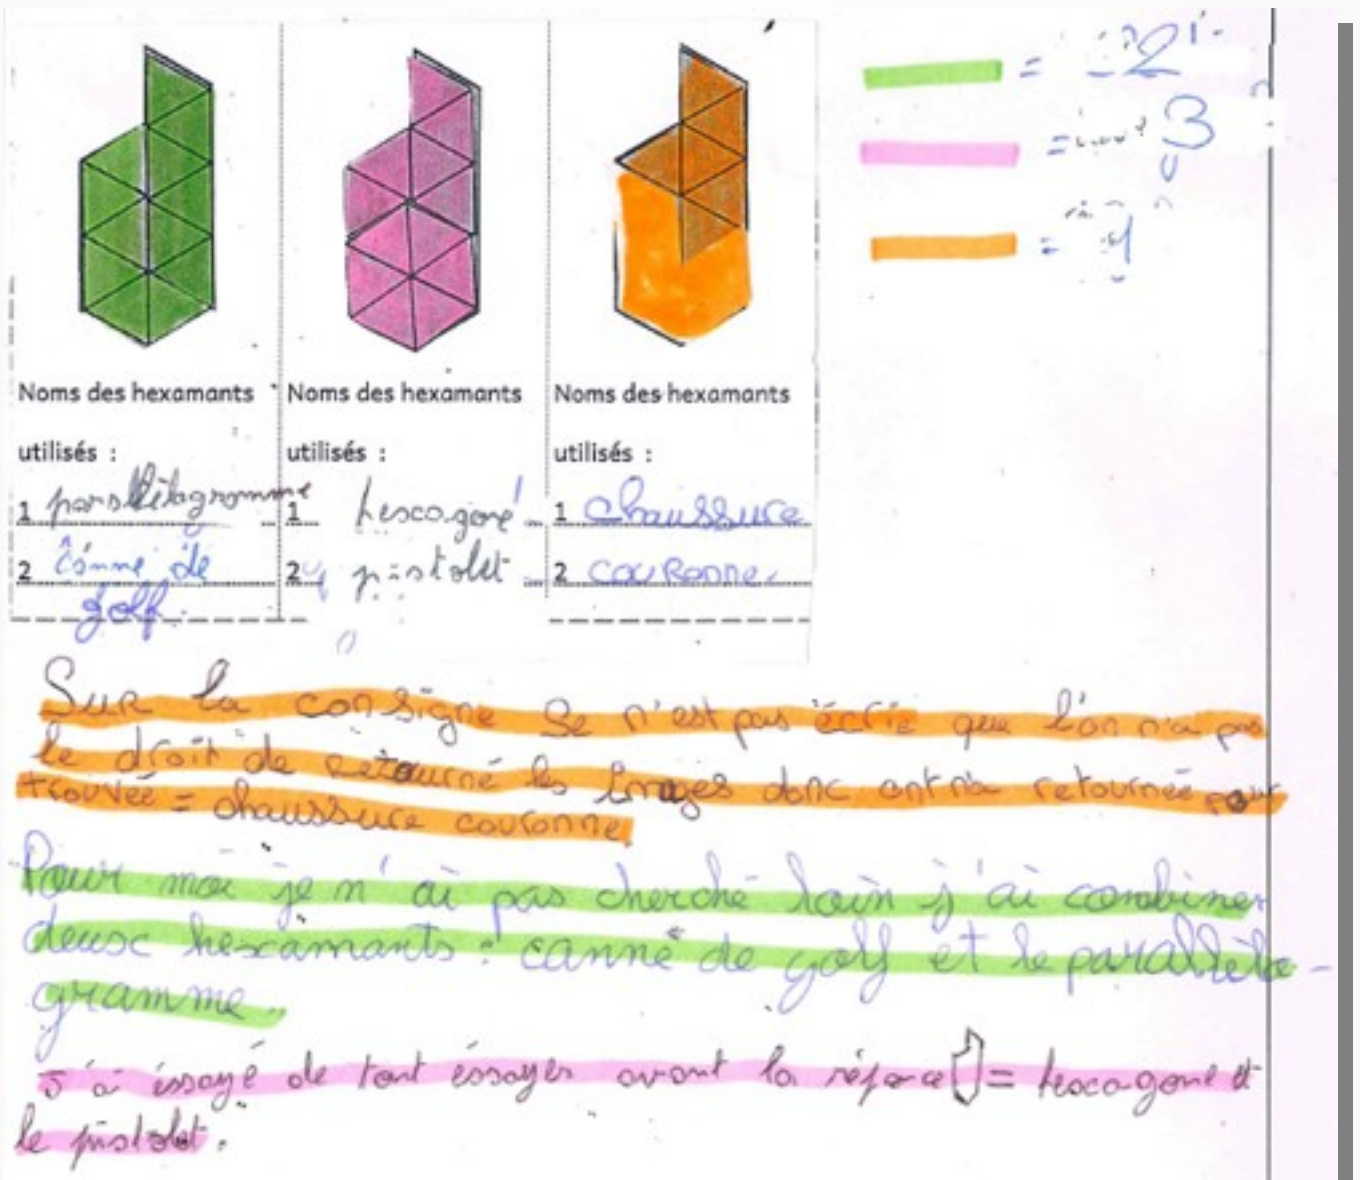 = 2
= 3
=
Noms des hexamants
utilisés :
1 parallélogramme
2 canne de
golf
Noms des hexamants
utilisés :
1 hexagone
2 pistolet
Noms des hexamants
utilisés :
1 chaussure
2 couronne
Sur la consigne se n'est pas écrie que l'on n'a pas
le droit de retourné les images donc ont n'a retournée pour
trouvée = chaussure couronne
Pour moi je n'ai pas cherché loin j'ai combiner
deux hexamants : canne de golf et le parallèlo-
gramme.
J'ai éssayé de tout éssayer avant la = hexagone et
le pistolet.